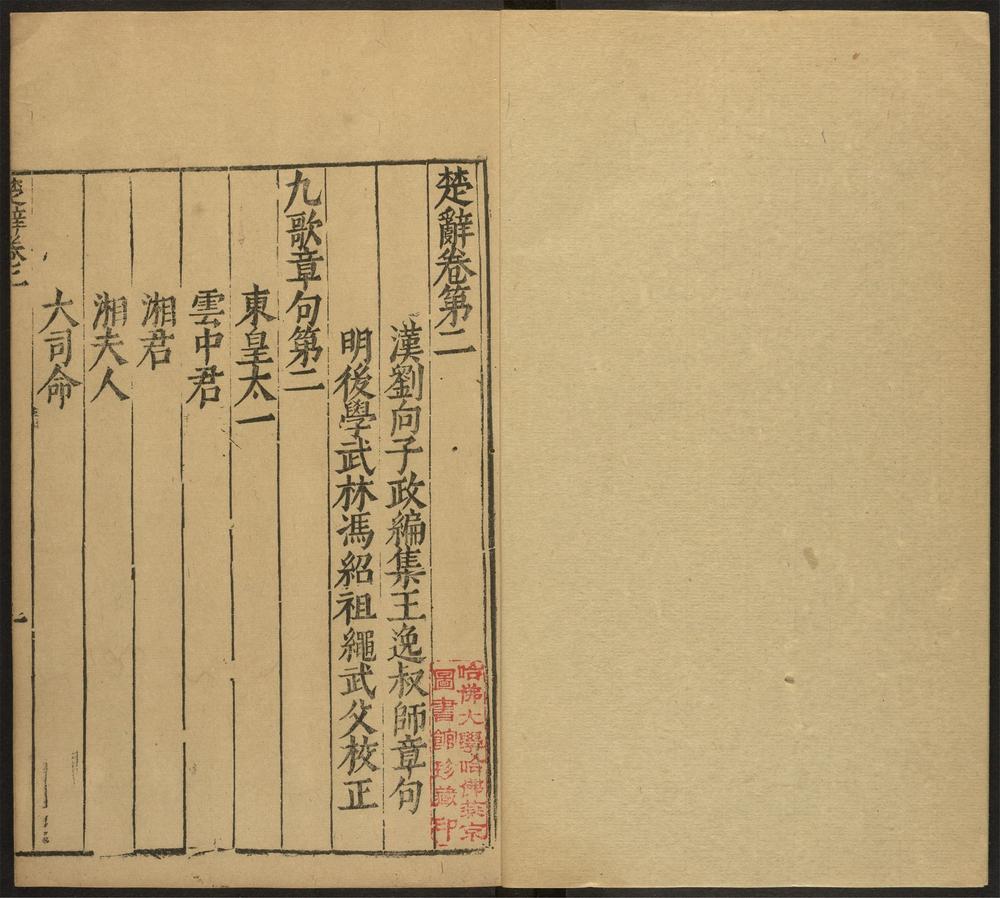 楚辭卷第二
漢劉向子政編集王逸叔師章句
明後學武林馮紹祖繩武父校正
九歌章句第二
東皇太一
雲中君
湘君
湘夫人
大司命
楚辭卷二
一
哈佛大學哈佛燕京
圖書館珍藏印